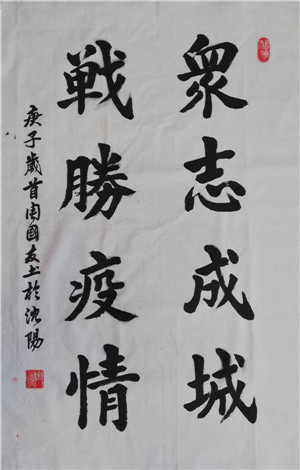 衆志成城
戦勝疫情
庚子歲首周國友书於沈陽